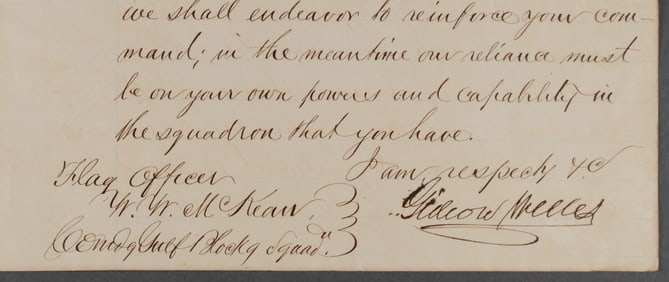 we shall endeavor to reinforce your com-
mand; in the meantime our reliance must
be on your own powers and capability in
the squadron that you have.
I am, respecty &c
Flag Officer
W. W. McKean,
Gideon Welles
Comdg Gulf Blockg Squadn.